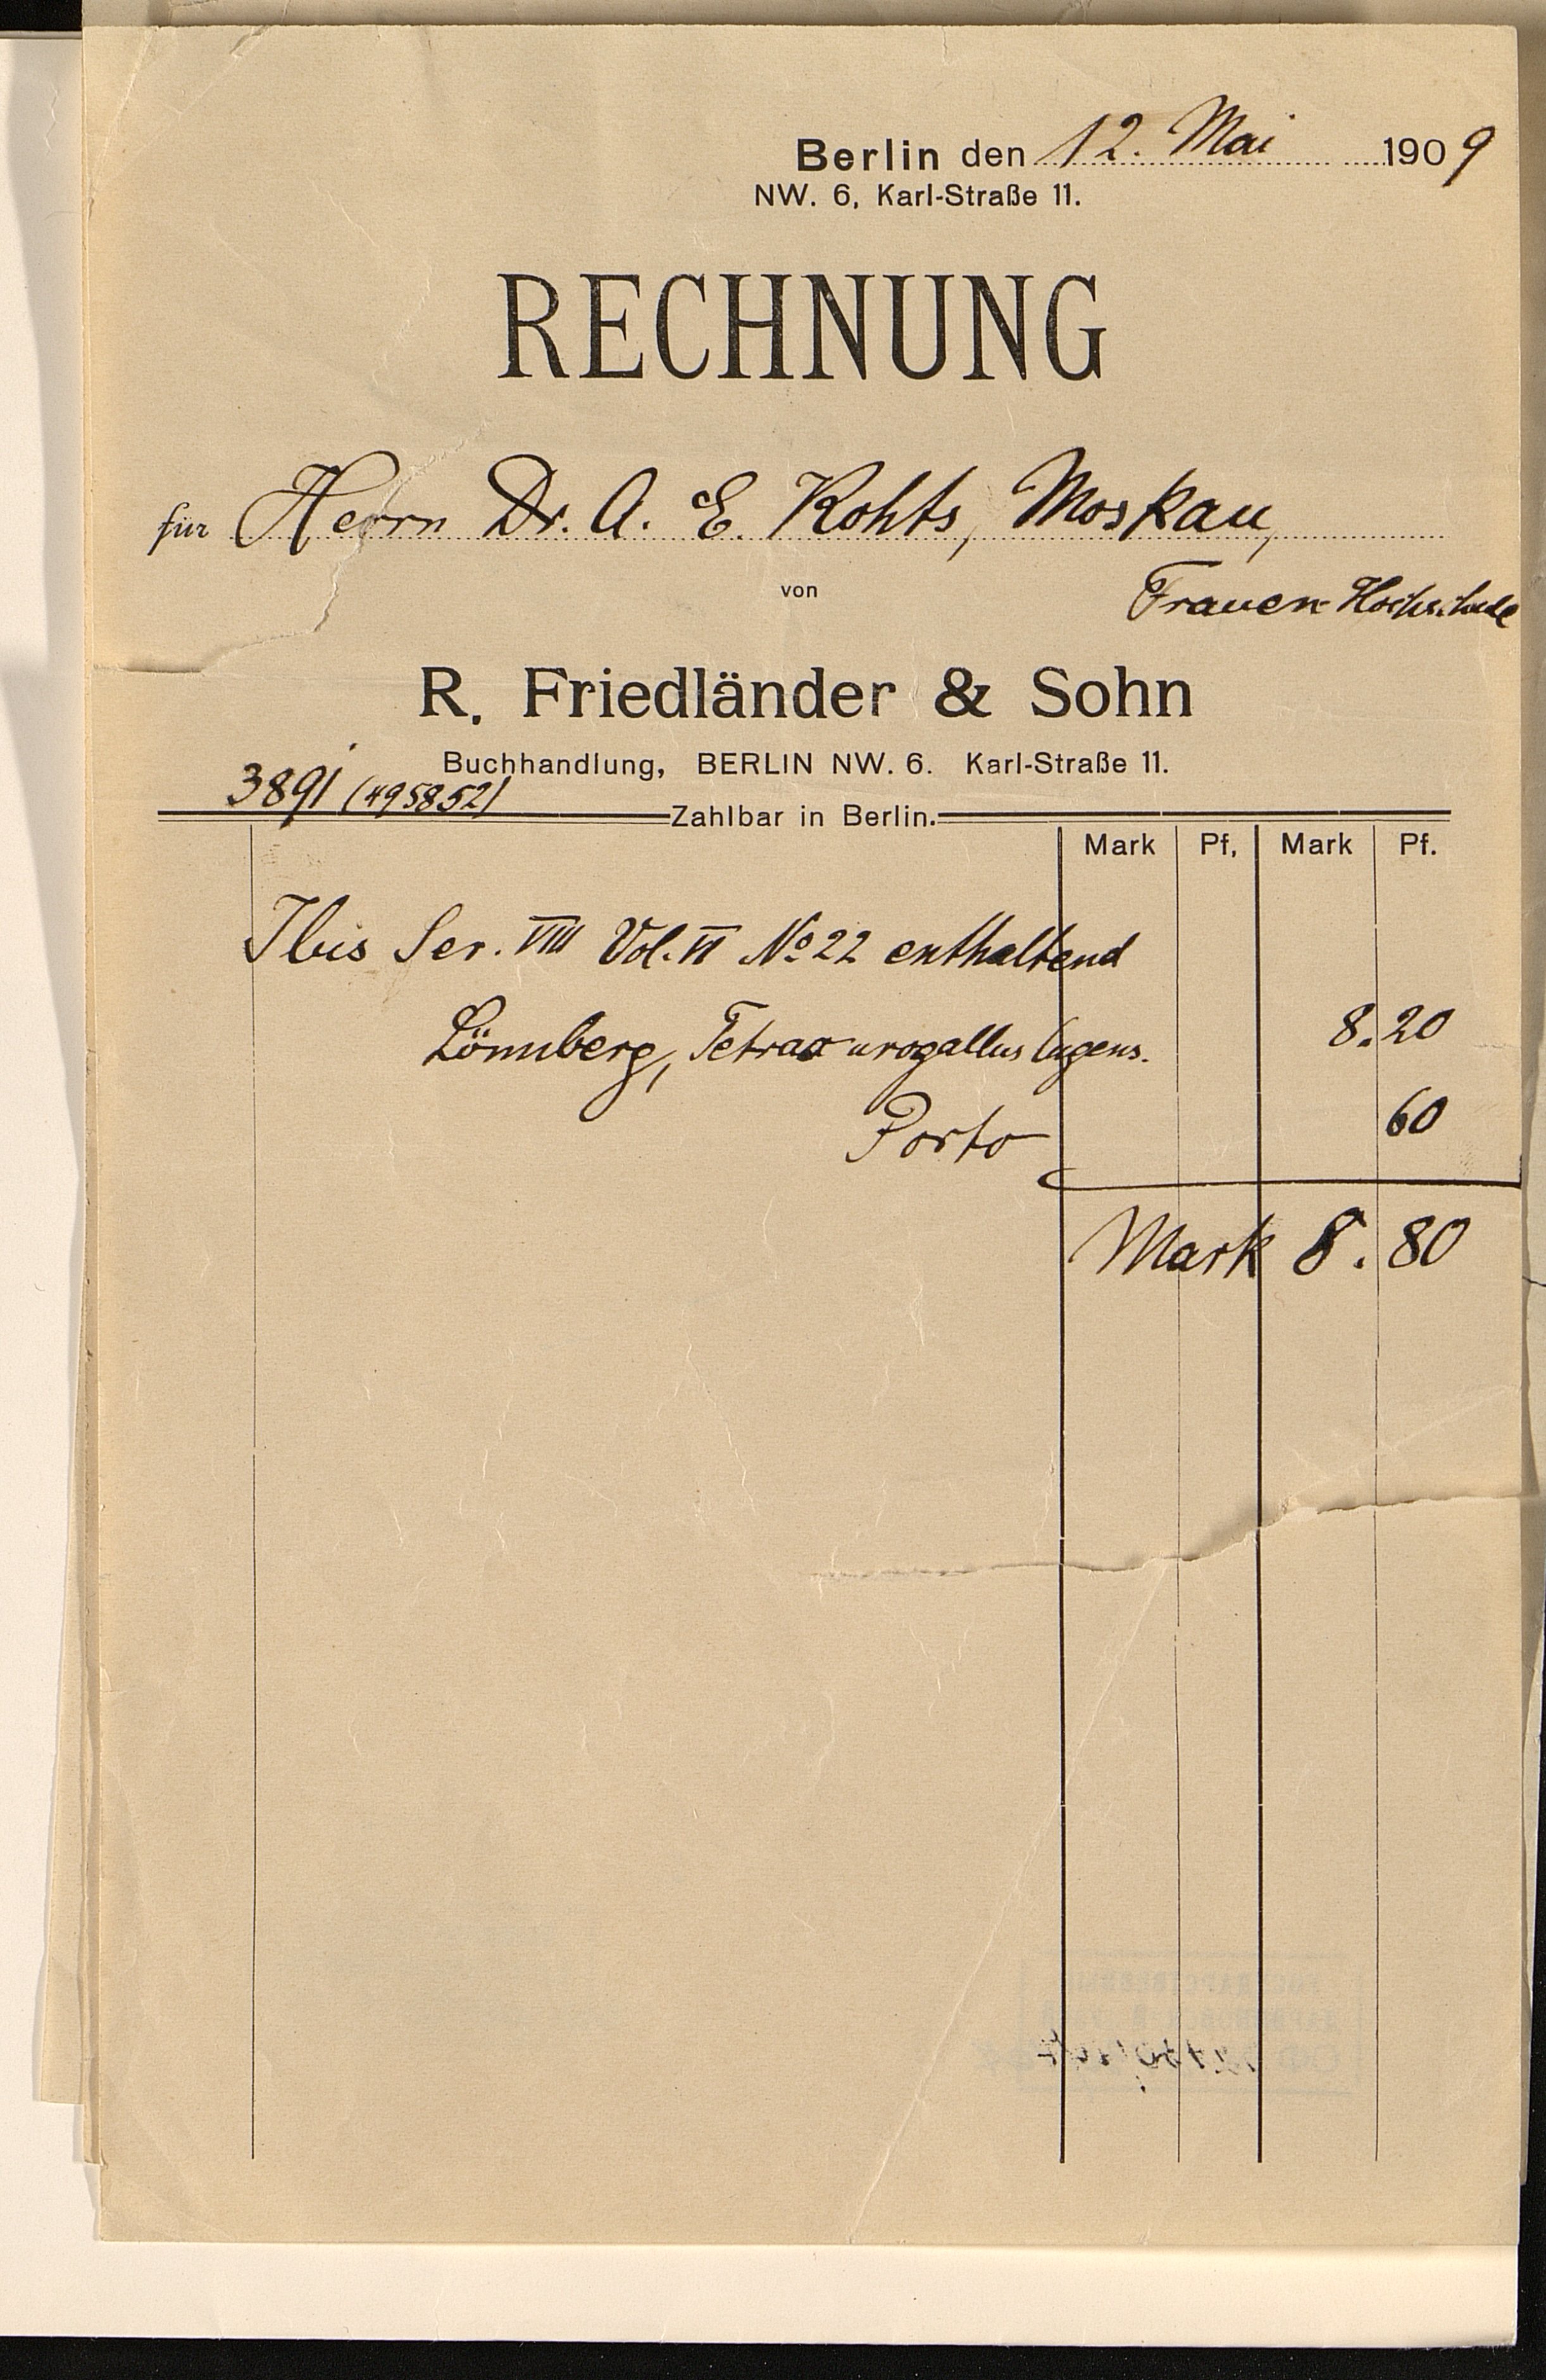 Berlin den 12. Mai 1909
NW. 6, Karl-Straße 11.
RECHNUNG
für Herrn Dr. A. E. Kohts, Moskau,
von
Frauen-Hochschule
R. Friedländer & Sohn
Buchhandlung, BERLIN NW. 6. Karl-Straße 11.
3891 (495852)
Zahlbar in Berlin.
Mark Pf. Mark Pf.
Ibis Ser. VIII Vol. VI No 22 enthaltend
Lönnberg, Tetrao urogallus lugens. 8.20
Porto 60
Mark 8.80